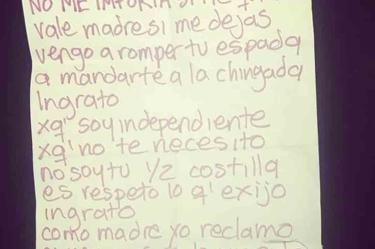 NO ME IMPORTA SI me
vale madre si me dejas
vengo a romper tu espada
a mandarte a la chingada
Ingrato
xq' soy independiente
xq' no te necesito
no soy tu 1/2 costilla
es respeto lo q' exijo
ingrato
como madre yo reclamo